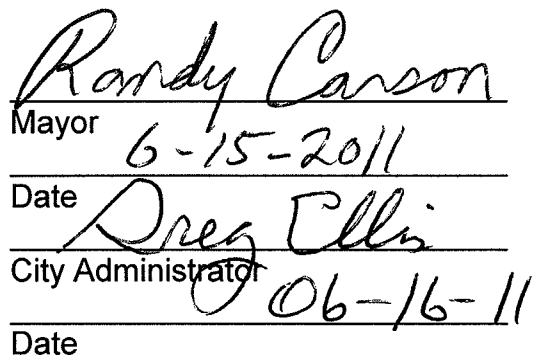 Randy Carson
Mayor
6-15-2011
Date
Greg Ellis
City Administrator
06-16-11
Date